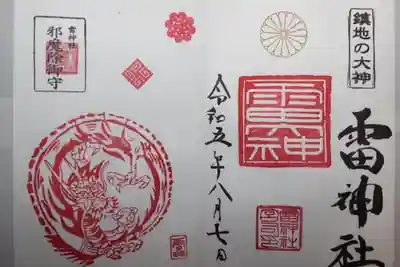 鎮地の大神
雷神社
雷神
令和五年八月七日
雷神社
邪魔除御守